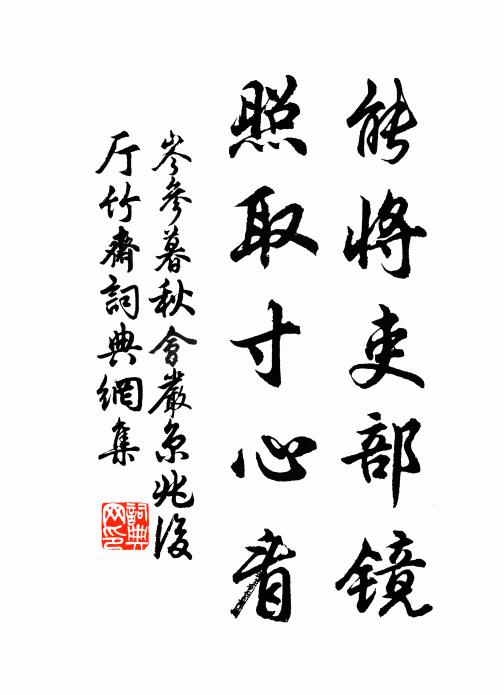 能将吏部镜
照取寸心看
岑參暮秋會嚴京兆後
厅竹齋詞典網集
詞典
网印